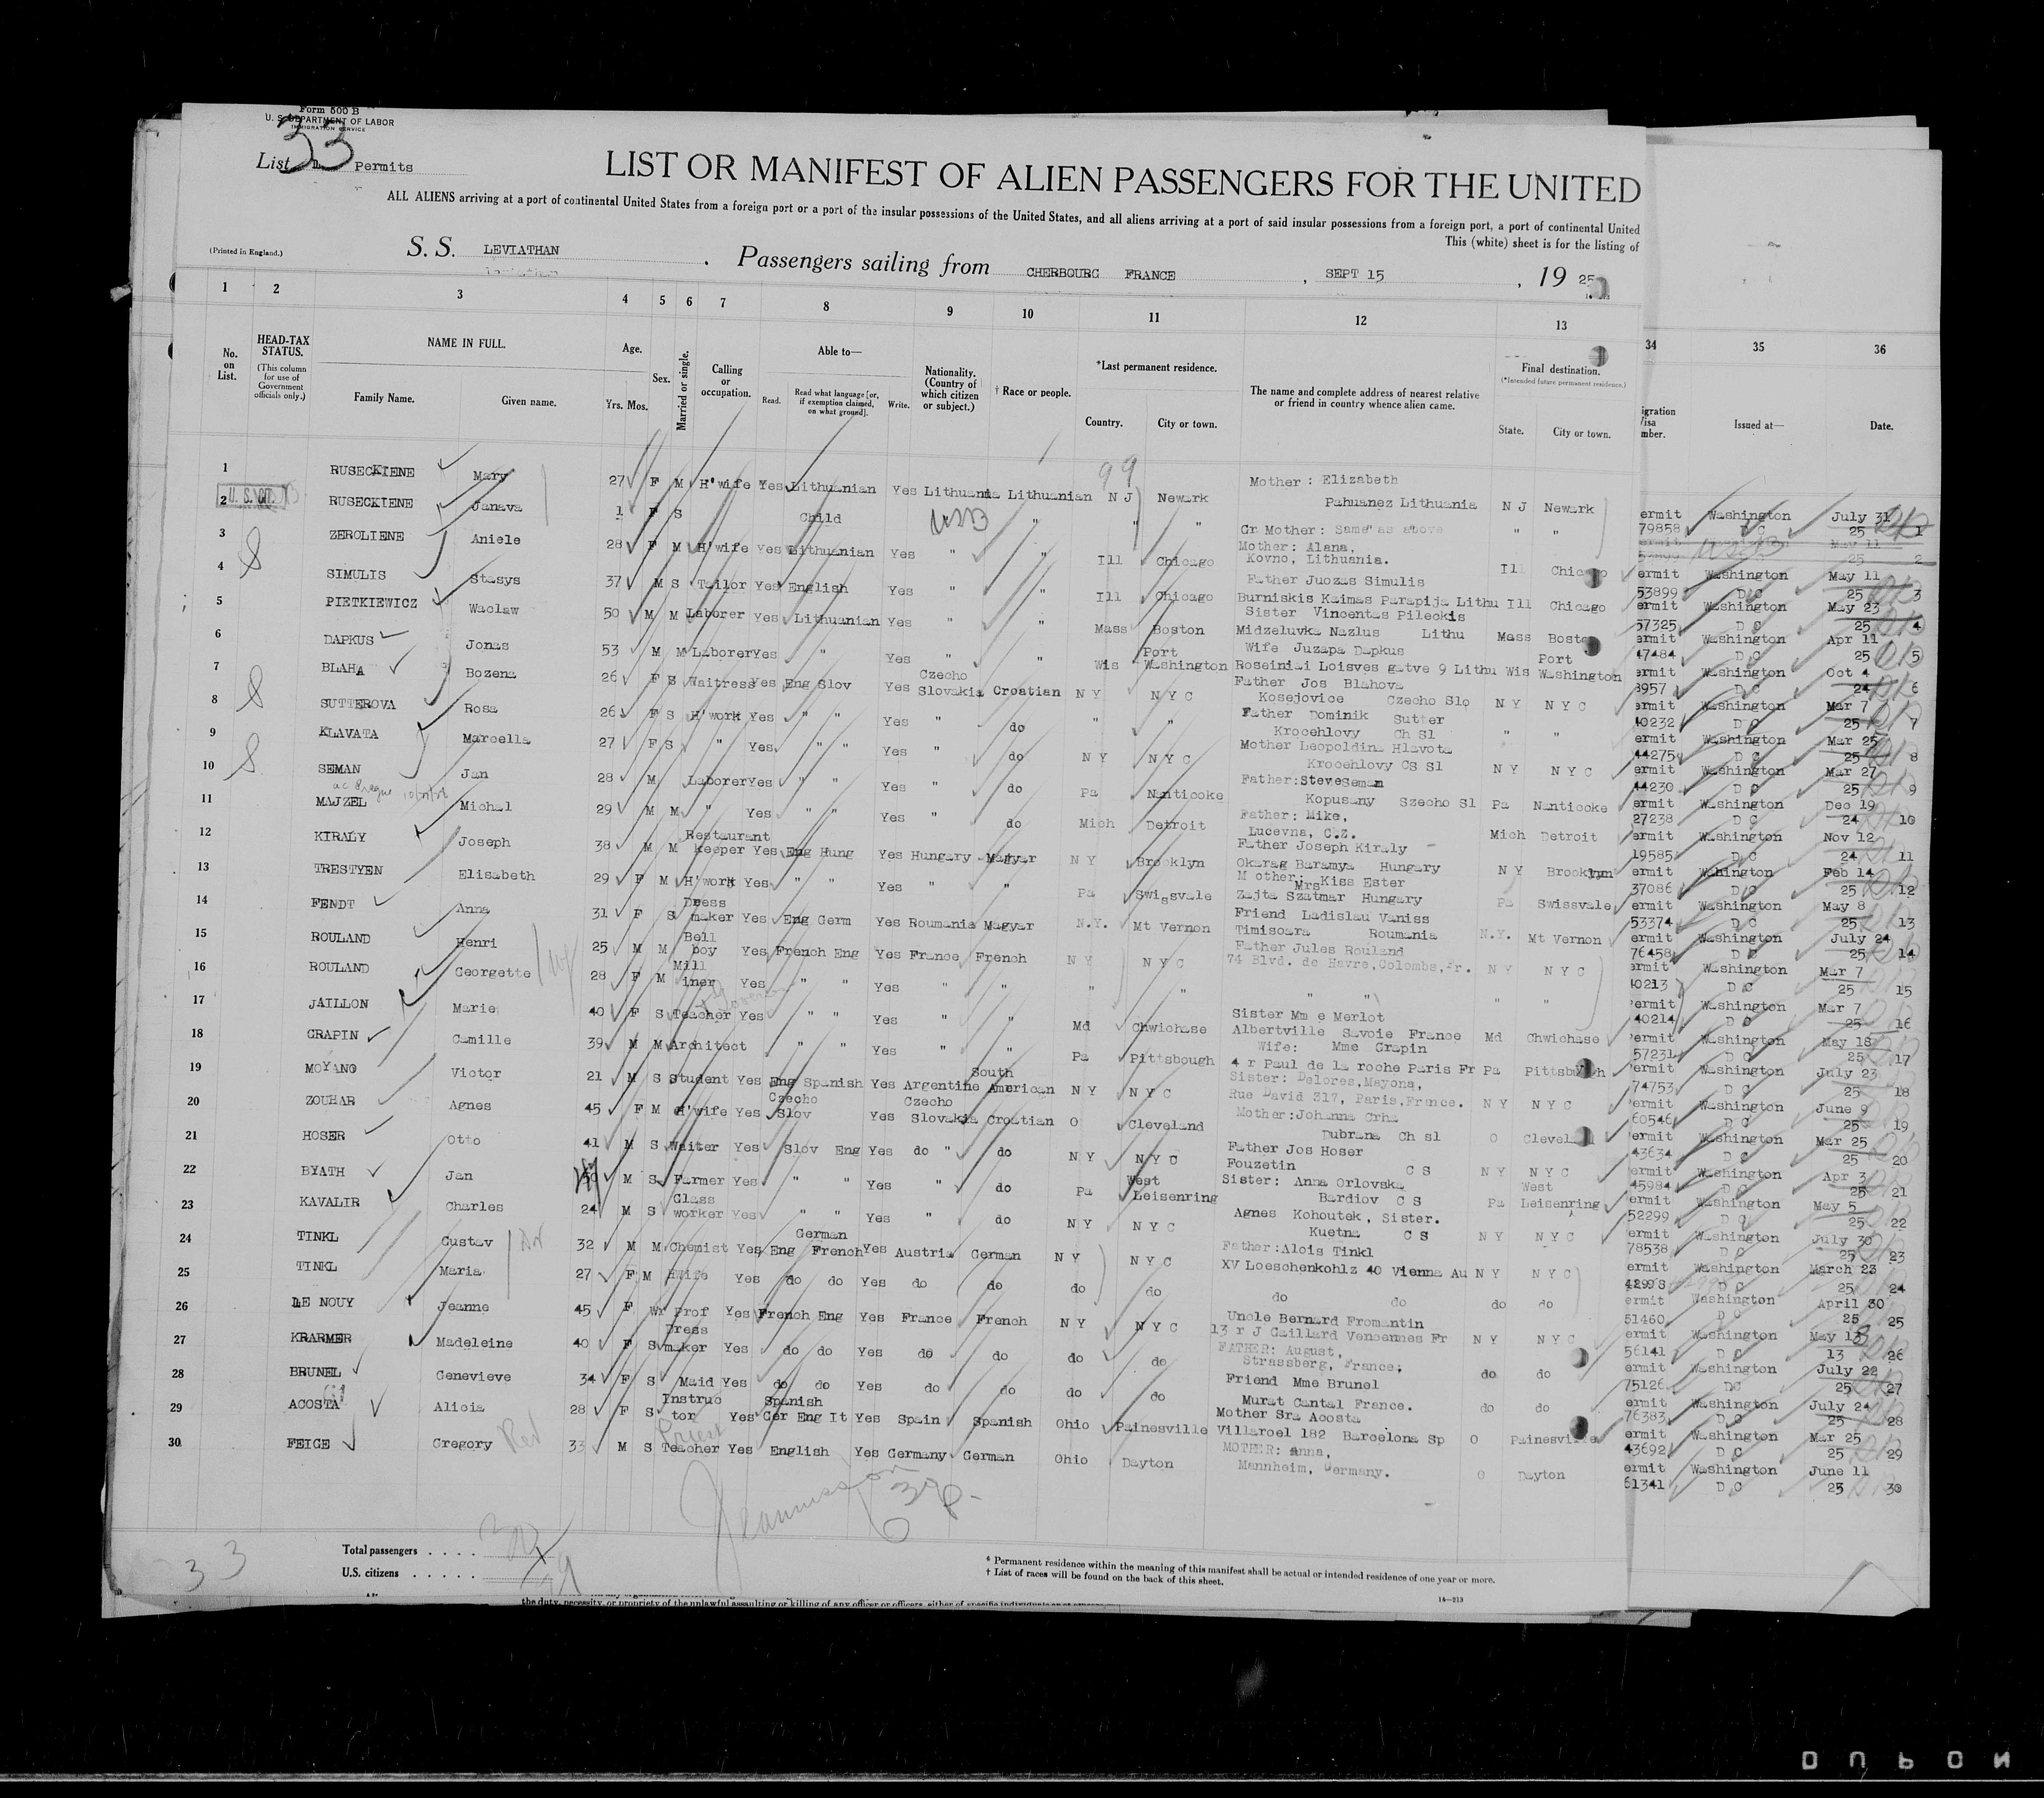 Form 500 B
U. S. DEPARTMENT OF LABOR
IMMIGRATION SERVICE
List 33 Permits
LIST OR MANIFEST OF ALIEN PASSENGERS FOR THE UNITED
ALL ALIENS arriving at a port of continental United States from a foreign port or a port of the insular possessions of the United States, and all aliens arriving at a port of said insular possessions from a foreign port, a port of continental United
This (white) sheet is for the listing of
(Printed in England.)
S. S. LEVIATHAN . Passengers sailing from CHERBOURG FRANCE , SEPT 15 , 19 25
1 2 3 4 5 6 7 8 9 10 11 12 13 34 35 36
No. on List.
HEAD-TAX STATUS. (This column for use of Government officials only.)
NAME IN FULL.
Family Name. Given name.
Age. Yrs. Mos.
Sex.
Married or single.
Calling or occupation.
Able to—
Read. Read what language [or, if exemption claimed, on what ground]. Write.
Nationality. (Country of which citizen or subject.)
† Race or people.
*Last permanent residence.
Country. City or town.
The name and complete address of nearest relative or friend in country whence alien came.
Final destination. (*Intended future permanent residence.)
State. City or town.
igration Visa mber. Issued at— Date.
99
1 RUSECKIENE Mary 27 F M H'wife Yes Lithuanian Yes Lithuania Lithuanian N J Newark Mother: Elizabeth Pahuanez Lithuania N J Newark ermit 79858 Washington D C July 31 25 1
2 U. S. CIT. RUSECKIENE Janava 1 F S Child USB " " " Gr Mother: Same as above " " ermit May 11 25 2
3 ZEROLIENE Aniele 28 F M H'wife Yes Lithuanian Yes " " Ill Chicago Mother: Alana, Kovno, Lithuania. Ill Chicago ermit 53899 Washington D C May 11 25 3
4 SIMULIS Stasys 37 M S Tailor Yes English Yes " " Ill Chicago Father Juozas Simulis Burniskis Kaimas Parapija Lithu Ill Chicago ermit 57325 Washington D C May 23 25 4
5 PIETKIEWICZ Waclaw 50 M M Laborer Yes Lithuanian Yes " " Mass Boston Sister Vincentas Pileckis Midzeluvka Nazlus Lithu Mass Boston ermit 47484 Washington D C Apr 11 25 5
6 DAPKUS Jonas 53 M M Laborer Yes " Yes " " Wis Port Washington Wife Juzapa Dapkus Roseiniai Loisves gatve 9 Lithu Wis Port Washington ermit 3957 Washington D C Oct 4 24 6
7 BLAHA Bozena 26 F S Waitress Yes Eng Slov Yes Czecho Slovakia Croatian N Y N Y C Father Jos Blahova Kosejovice Czecho Slo N Y N Y C ermit 40232 Washington D C Mar 7 25 7
8 SUTTEROVA Rosa 26 F S H'work Yes " " Yes " do " " Father Dominik Sutter Krocehlovy Ch Sl " " ermit 44275 Washington D C Mar 25 25 8
9 KLAVATA Marcella 27 F S " Yes " " Yes " do N Y N Y C Mother Leopoldina Hlavota Krocehlovy CS Sl N Y N Y C ermit 44230 Washington D C Mar 27 25 9
10 SEMAN Jan 28 M Laborer Yes " " Yes " do Pa Nanticoke Father: Steve Seman Kopusany Szecho Sl Pa Nanticoke ermit 27238 Washington D C Dec 19 24 10
11 MAJZEL Michal 29 M M " Yes " " Yes " do Mich Detroit Father: Mike, Lucevna, C.z. Mich Detroit ermit 19585 Washington D C Nov 12 24 11
12 KIRALY Joseph 38 M M Restaurant keeper Yes Eng Hung Yes Hungary Magyar N Y Brooklyn Father Joseph Kiraly Okarag Baramya Hungary N Y Brooklyn ermit 37086 Wahington D C Feb 14 25 12
13 TRESTYEN Elisabeth 29 F M H'work Yes " " Yes " " Pa Swissvale Mother: Mrs Kiss Ester Zajta Szatmar Hungary Pa Swissvale ermit 53374 Washington D C May 8 25 13
14 FENDT Anna 31 F S Dress maker Yes Eng Germ Yes Roumania Magyar N.Y. Mt Vernon Friend Ladislau Vaniss Timisoara Roumania N.Y. Mt Vernon ermit 76458 Washington D C July 24 25 14
15 ROULAND Henri 25 M M Bell boy Yes French Eng Yes France French N Y N Y C Father Jules Rouland 74 Blvd. de Havre, Colombs, Fr. N Y N Y C ermit 40213 Washington D C Mar 7 25 15
16 ROULAND Georgette 28 F M Mill iner Yes " " Yes " " " " " " " " ermit 40214 Washington D C Mar 7 25 16
17 JAILLON Marie 40 F S Teacher Yes " " Yes " " Md Chwichase Sister Mm e Merlot Albertville Savoie France Md Chwichase ermit 57231 Washington D C May 18 25 17
18 GRAPIN Camille 39 M M Architect " " Yes " " Pa Pittsbough Wife: Mme Grapin 4 r Paul de la roche Paris Fr Pa Pittsbugh ermit 74753 Washington D C July 23 25 18
19 MOYANO Victor 21 M S Student Yes Eng Spanish Yes Argentine South American N Y N Y C Sister: Delores, Mayona, Rue David 317, Paris, France. N Y N Y C ermit 60546 Washington D C June 9 25 19
20 ZOUHAR Agnes 45 F M H'wife Yes Czecho Slov Yes Czecho Slovakia Croatian O Cleveland Mother: Johanna Crha Dubrana Ch sl O Cleveland ermit 43634 Washington D C Mar 25 25 20
21 HOSER Otto 41 M S Waiter Yes Slov Eng Yes do " do N Y N Y C Father Jos Hoser Fouzetin C S N Y N Y C ermit 45984 Washington D C Apr 3 25 21
22 BYATH Jan M S Farmer Yes " " Yes " do Pa West Leisenring Sister: Anna Orlovska Bardiov C S Pa West Leisenring ermit 52299 Washington D C May 5 25 22
23 KAVALIR Charles 24 M S Glass worker Yes " " Yes " do N Y N Y C Agnes Kohoutek, Sister. Kuetna C S N Y N Y C ermit 78538 Washington D C July 30 25 23
24 TINKL Gustav 32 M M Chemist Yes German Eng French Yes Austria German N Y N Y C Father: Alois Tinkl XV Loeschenkohlz 40 Vienna Au N Y N Y C ermit Washington D C March 23 25 24
25 TINKL Maria 27 F M Hwife Yes do do Yes do do do do do do do do ermit 51460 Washington D C April 30 25 25
26 LE NOUY Jeanne 45 F Wr Prof Yes French Eng Yes France French N Y N Y C Uncle Bernard Fromantin 13 r J Gaillard Vencennes Fr N Y N Y C ermit 56141 Washington D C May 13 13 26
27 KRARMER Madeleine 40 F S Dress maker Yes do do Yes do do do do FATHER: August, Strassberg, France; do do ermit 75126 Washington DC July 22 25 27
28 BRUNEL Genevieve 34 F S Maid Yes do do Yes do do do do Friend Mme Brunel Murat Cantal France. do do ermit 76383 Washington D C July 24 25 28
29 ACOSTA Alicia 28 F S Instruc tor Yes Spanish Ger Eng It Yes Spain Spanish Ohio Painesville Mother Sra Acosta Villaroel 182 Barcelona Sp O Painesville ermit 43692 Washington D C Mar 25 25 29
30 FEIGE Gregory Rev 33 M S Priest Teacher Yes English Yes Germany German Ohio Dayton MOTHER: Anna, Mannheim, Germany. O Dayton ermit 61341 Washington D C June 11 25 30
33
Total passengers . . . .
U.S. citizens . . . . .
* Permanent residence within the meaning of this manifest shall be actual or intended residence of one year or more.
† List of races will be found on the back of this sheet.
14—213
the duty, necessity, or propriety of the unlawful assaulting or killing of any officer or officers, either of specific individuals or